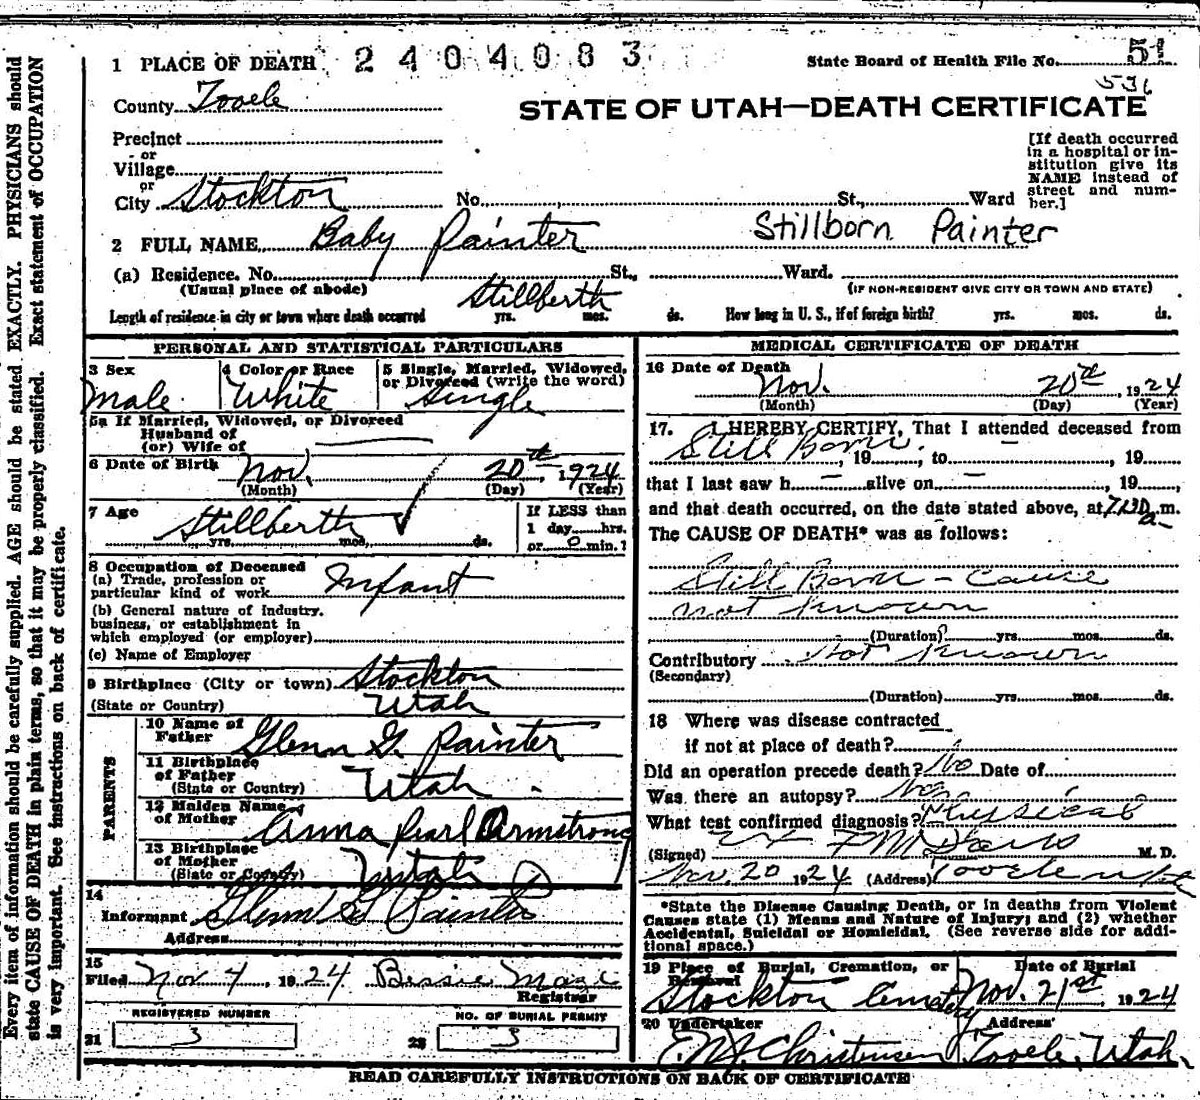 Every item of information should be carefully supplied. AGE should be stated EXACTLY. PHYSICIANS should
state CAUSE OF DEATH in plain terms, so that it may be properly classified. Exact statement of OCCUPATION
is very important. See instructions on back of certificate.
1 PLACE OF DEATH 2404083 State Board of Health File No. 51
536
County Tooele STATE OF UTAH—DEATH CERTIFICATE
Precinct
or
Village
or
City Stockton No. St., Ward
[If death occurred
in a hospital or in-
stitution give its
NAME instead of
street and num-
ber.]
2 FULL NAME Baby Painter Stillborn Painter
(a) Residence. No. St., Ward.
(Usual place of abode) (IF NON-RESIDENT GIVE CITY OR TOWN AND STATE)
Stillberth
Length of residence in city or town where death occurred yrs. mos. ds. How long in U. S., if of foreign birth? yrs. mos. ds.
PERSONAL AND STATISTICAL PARTICULARS
3 Sex 4 Color or Race 5 Single, Married, Widowed,
or Divorced (write the word)
Male White Single
5a If Married, Widowed, or Divorced
Husband of
(or) Wife of
6 Date of Birth Nov. 20th, 1924
(Month) (Day) (Year)
7 Age Stillberth If LESS than
yrs. mos. ds. 1 day hrs.
or 0 min.?
8 Occupation of Deceased
(a) Trade, profession or
particular kind of work Infant
(b) General nature of industry.
business, or establishment in
which employed (or employer)
(c) Name of Employer
9 Birthplace (City or town) Stockton
(State or Country) Utah
PARENTS
10 Name of
Father Glenn G. Painter
11 Birthplace
of Father
(State or Country) Utah
12 Maiden Name
of Mother Anna Pearl Armstrong
13 Birthplace
of Mother
(State or County) Utah
14
Informant Glenn G Painter
Address
15
Filed Nov 4, 1924 Bessie
Registrar
REGISTERED NUMBER NO. OF BURIAL PERMIT
21 3 22 3
MEDICAL CERTIFICATE OF DEATH
16 Date of Death
Nov. 20th, 1924
(Month) (Day) (Year)
17. I HEREBY CERTIFY, That I attended deceased from
Still Born, 19 , to , 19
that I last saw h — alive on — , 19 ,
and that death occurred, on the date stated above, at 7.30 a m.
The CAUSE OF DEATH* was as follows:
Still Born - Cause
not known
(Duration) yrs. mos. ds.
Contributory Not known
(Secondary)
(Duration) yrs. mos. ds.
18 Where was disease contracted
if not at place of death?
Did an operation precede death? No Date of
Was there an autopsy? No
What test confirmed diagnosis? Physical
(Signed) M. D.
Nov. 20 1924 (Address) Tooele Utah
*State the Disease Causing Death, or in deaths from Violent
Causes state (1) Means and Nature of Injury; and (2) whether
Accidental, Suicidal or Homicidal. (See reverse side for addi-
tional space.)
19 Place of Burial, Cremation, or Date of Burial
Removal
Stockton Cemetery Nov. 21st, 1924
20 Undertaker Address
Christensen Tooele, Utah
READ CAREFULLY INSTRUCTIONS ON BACK OF CERTIFICATE